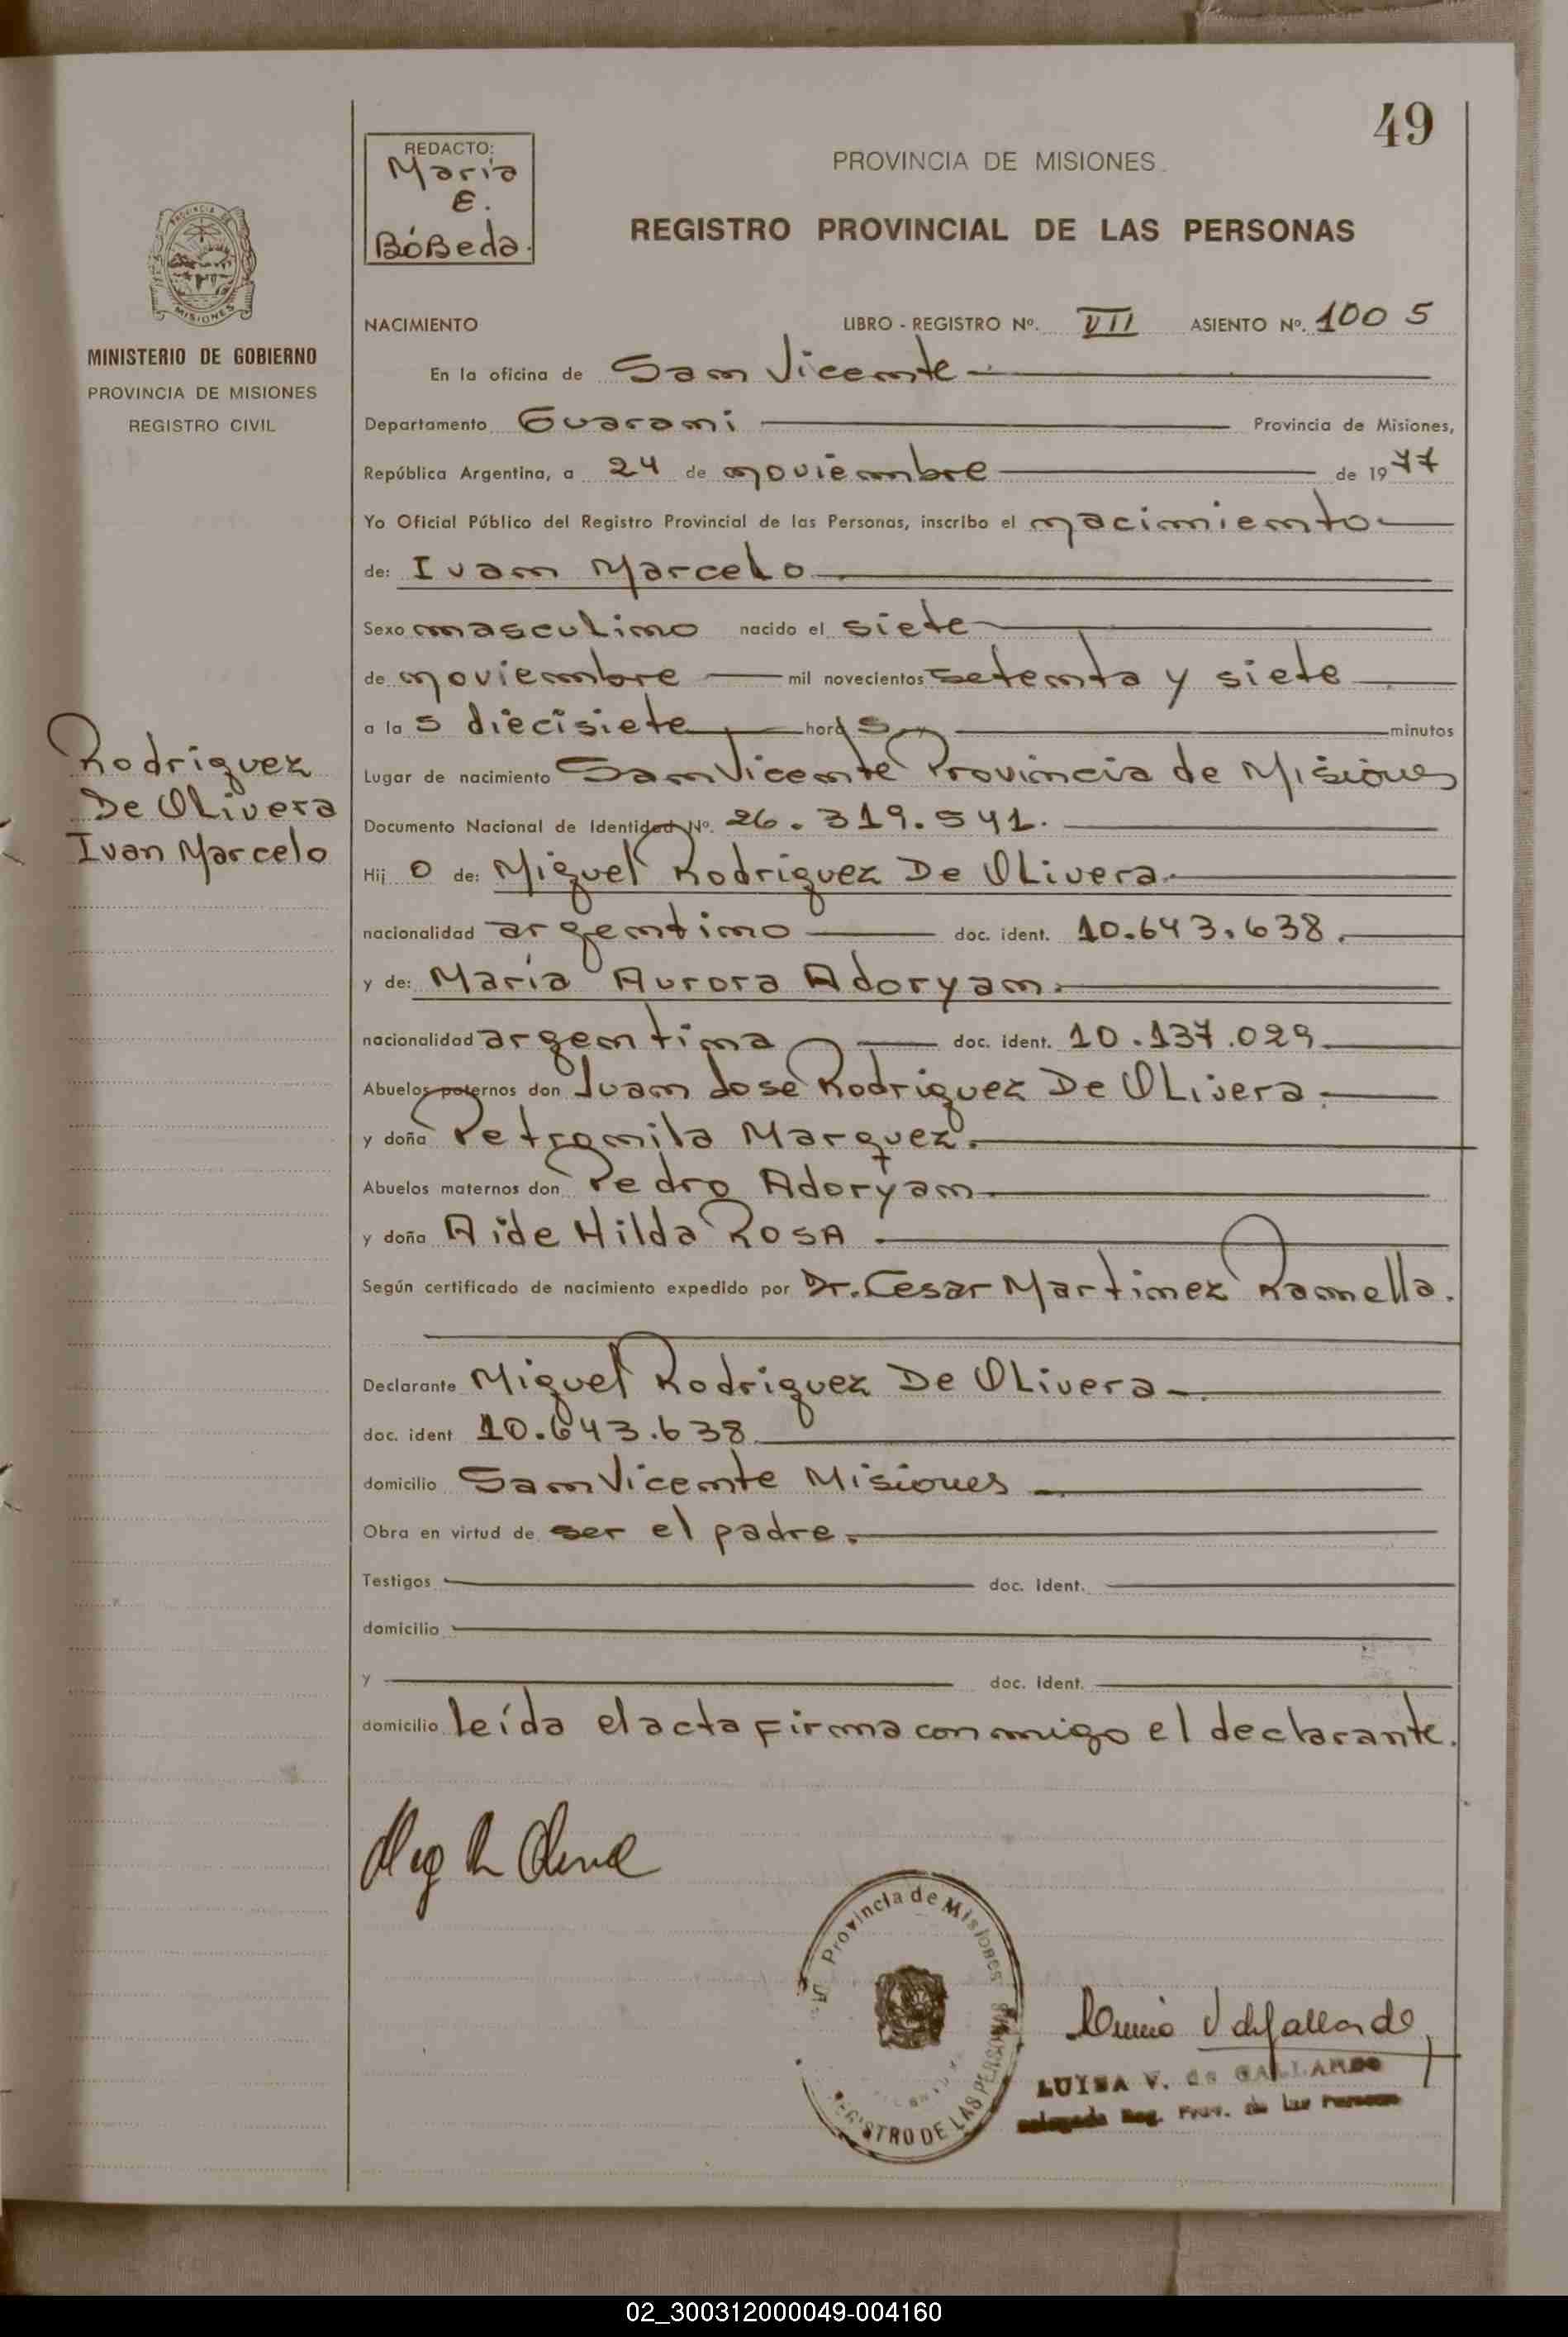 49
REDACTO:
Maria
E.
BóBeda.
PROVINCIA DE MISIONES
REGISTRO PROVINCIAL DE LAS PERSONAS
MISIONES
MINISTERIO DE GOBIERNO
PROVINCIA DE MISIONES
REGISTRO CIVIL
NACIMIENTO LIBRO - REGISTRO Nº. VII ASIENTO Nº. 1005
En la oficina de San Vicente
Departamento Guarani Provincia de Misiones,
República Argentina, a 24 de noviembre de 1977
Yo Oficial Público del Registro Provincial de las Personas, inscribo el nacimiento
de: Ivan Marcelo
Sexo masculino nacido el siete
de noviembre mil novecientos setenta y siete
a las diecisiete horas minutos
Lugar de nacimiento San Vicente Provincia de Misiones
Rodriguez
De Olivera
Ivan Marcelo
Documento Nacional de Identidad Nº. 26.319.541.
Hijo de: Miguel Rodriguez De Olivera.
nacionalidad argentino doc. ident. 10.643.638.
y de: María Aurora Adoryan.
nacionalidad argentina doc. ident. 10.137.029
Abuelos paternos don Juan Jose Rodriguez De Olivera
y doña Petronila Marquez.
Abuelos maternos don Pedro Adoryan
y doña Aide Hilda Rosa
Según certificado de nacimiento expedido por Dr. Cesar Martinez Ramella.
Declarante Miguel Rodriguez De Olivera
doc. ident 10.643.638
domicilio San Vicente Misiones
Obra en virtud de ser el padre.
Testigos doc. ident.
domicilio
y doc. ident.
domicilio leída el acta firma conmigo el declarante.
Provincia de Misiones
REGISTRO DE LAS PERSONAS
LUISA V. de GALLARDO
Delegada Reg. Prov. de las Personas
02_300312000049-004160